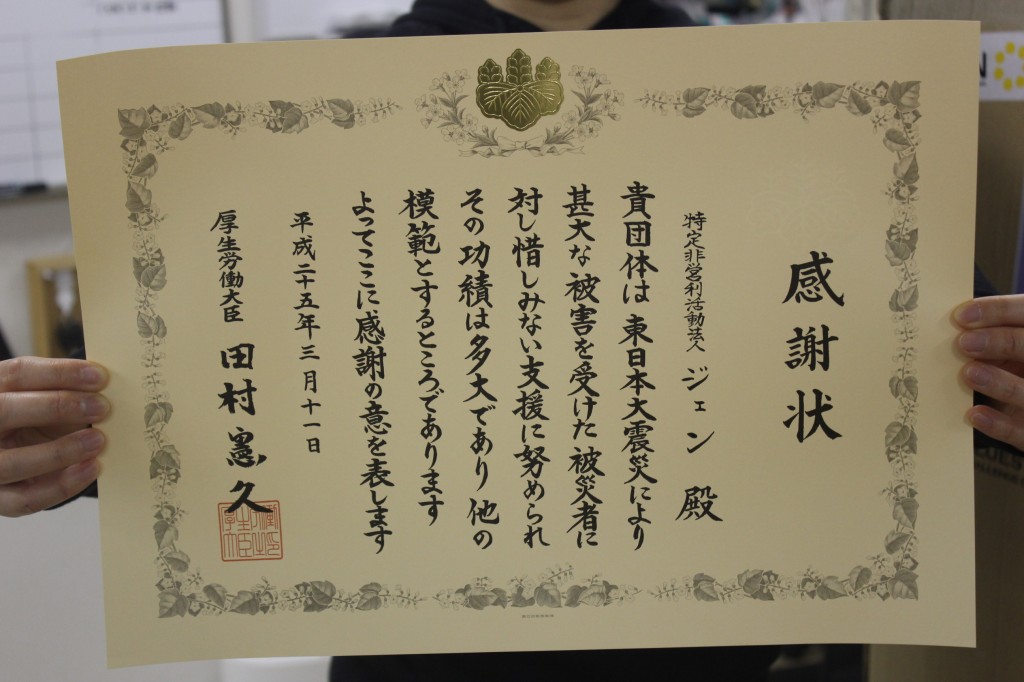 感謝状
特定非営利活動法人 ジェン 殿
貴団体は東日本大震災により
甚大な被害を受けた被災者に
対し惜しみない支援に努められ
その功績は多大であり他の
模範とするところであります
よってここに感謝の意を表します
平成二十五年三月十一日
厚生労働大臣 田村憲久